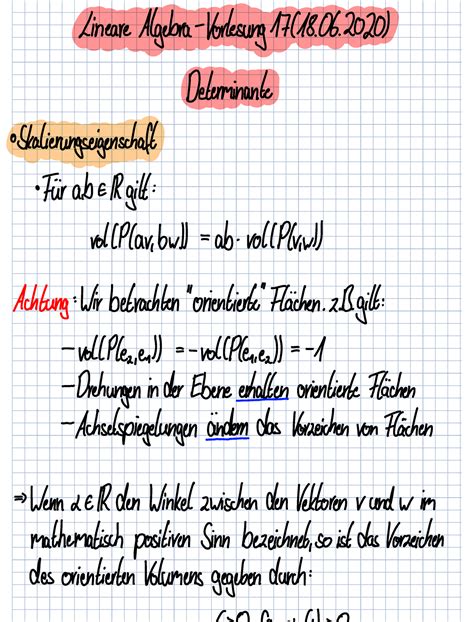 Lineare Algebra-Vorlesung 17(18.06.2020)
Determinante
• Skalierungseigenschaft
• Für a,b ∈ ℝ gilt:
vol(P(av,bw)) = ab · vol(P(v,w))
Achtung: Wir betrachten "orientierte" Flächen. z.B. gilt:
- vol(P(e₂,e₁)) = -vol(P(e₁,e₂)) = -1
- Drehungen in der Ebene erhalten orientierte Flächen
- Achselspiegelungen ändern das Vorzeichen von Flächen
⇒ Wenn α ∈ ℝ den Winkel zwischen den Vektoren v und w im
mathematisch positiven Sinn bezeichnet, so ist das Vorzeichen
des orientierten Volumens gegeben durch: